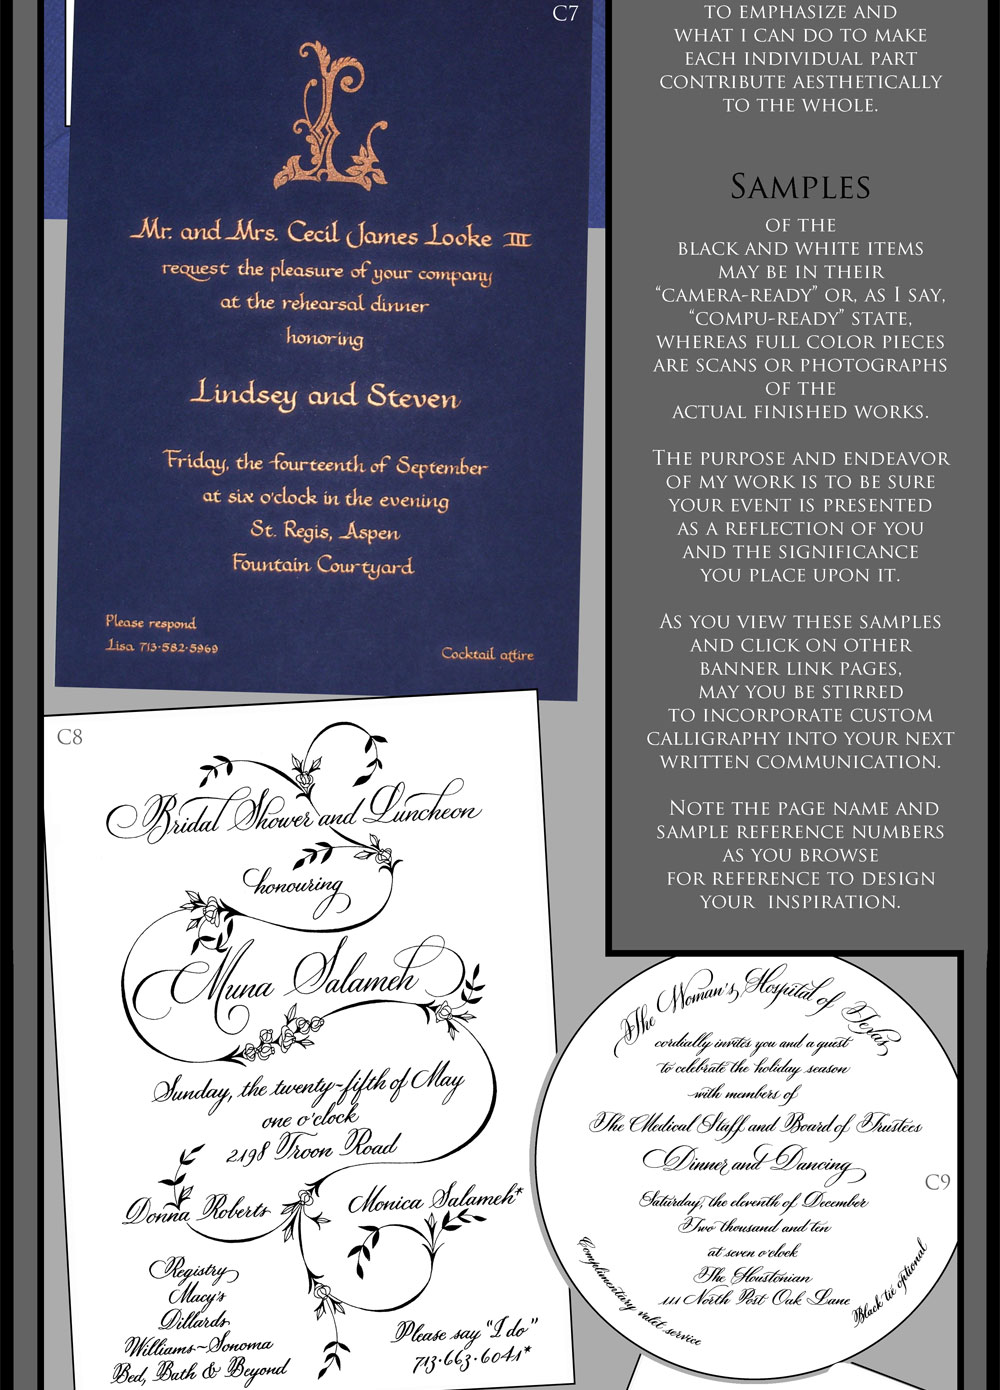 C7
L
Mr. and Mrs. Cecil James Looke III
request the pleasure of your company
at the rehearsal dinner
honoring
Lindsey and Steven
Friday, the fourteenth of September
at six o'clock in the evening
St. Regis, Aspen
Fountain Courtyard
Please respond
Lisa 713·582·5969
Cocktail attire
TO EMPHASIZE AND
WHAT I CAN DO TO MAKE
EACH INDIVIDUAL PART
CONTRIBUTE AESTHETICALLY
TO THE WHOLE.
SAMPLES
OF THE
BLACK AND WHITE ITEMS
MAY BE IN THEIR
“CAMERA-READY” OR, AS I SAY,
“COMPU-READY” STATE,
WHEREAS FULL COLOR PIECES
ARE SCANS OR PHOTOGRAPHS
OF THE
ACTUAL FINISHED WORKS.
THE PURPOSE AND ENDEAVOR
OF MY WORK IS TO BE SURE
YOUR EVENT IS PRESENTED
AS A REFLECTION OF YOU
AND THE SIGNIFICANCE
YOU PLACE UPON IT.
AS YOU VIEW THESE SAMPLES
AND CLICK ON OTHER
BANNER LINK PAGES,
MAY YOU BE STIRRED
TO INCORPORATE CUSTOM
CALLIGRAPHY INTO YOUR NEXT
WRITTEN COMMUNICATION.
NOTE THE PAGE NAME AND
SAMPLE REFERENCE NUMBERS
AS YOU BROWSE
FOR REFERENCE TO DESIGN
YOUR INSPIRATION.
C8
Bridal Shower and Luncheon
honouring
Muna Salameh
Sunday, the twenty-fifth of May
one o'clock
2198 Troon Road
Donna Roberts
Monica Salameh*
Registry
Macy's
Dillards
Williams~Sonoma
Bed, Bath & Beyond
Please say “I do”
713·663·6041*
The Woman's Hospital of Texas
cordially invites you and a guest
to celebrate the holiday season
with members of
The Medical Staff and Board of Trustees
Dinner and Dancing
C9
Saturday, the eleventh of December
Two thousand and ten
at seven o'clock
The Houstonian
111 North Post Oak Lane
Complimentary valet service
Black tie optional